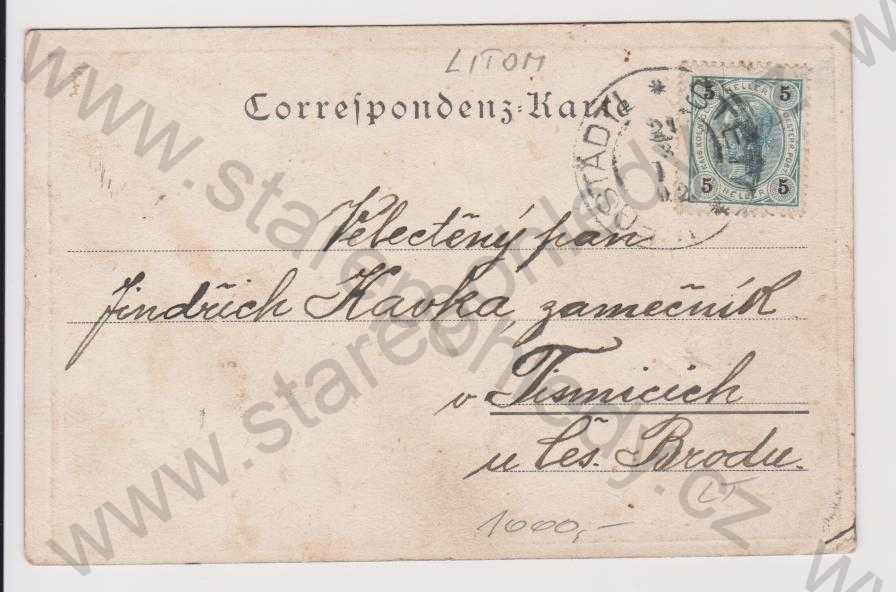 LITOM
Correſpondenz-Karte
5 HELLER 5
5 HELLER 5
Velectěný pan
Jindřich Kavka, zamečník
v Tismicích
u Čes. Brodu.
LT
1000,-
www.starepohledy.cz
www.starepohledy.cz